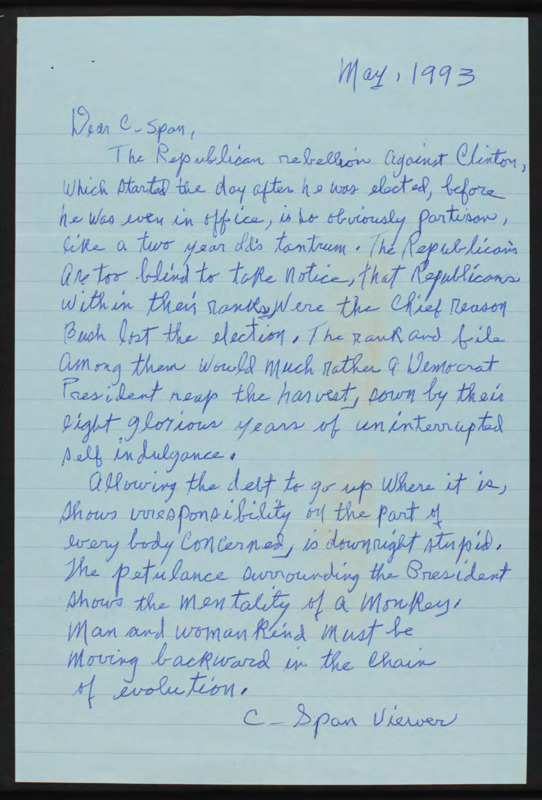 May, 1993
Dear C-Span,
The Republican rebellion against Clinton,
which started the day after he was elected, before
he was even in office, is so obviously partisan,
like a two year old's tantrum. The Republicans
are too blind to take notice, that Republicans
within their ranks, were the chief reason
Bush lost the election. The rank and file
among them would much rather a Democrat
President reap the harvest, sown by their
eight glorious years of uninterrupted
self indulgance.
Allowing the debt to go up where it is,
shows irresponsibility on the part of
every body concerned, is downright stupid.
The petulance surrounding the President
shows the mentality of a monkey.
Man and woman kind must be
moving backward in the chain
of evolution.
C-Span Viewer